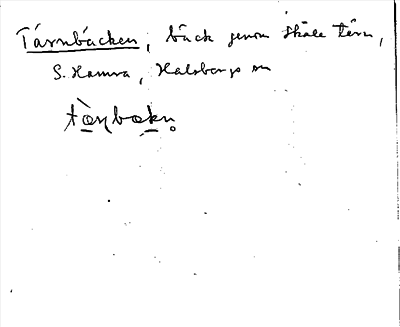 Tärnbäcken, bäck genom Skale tärn,
S. Hamra, Halsbergs sn
tæṇbækn̥